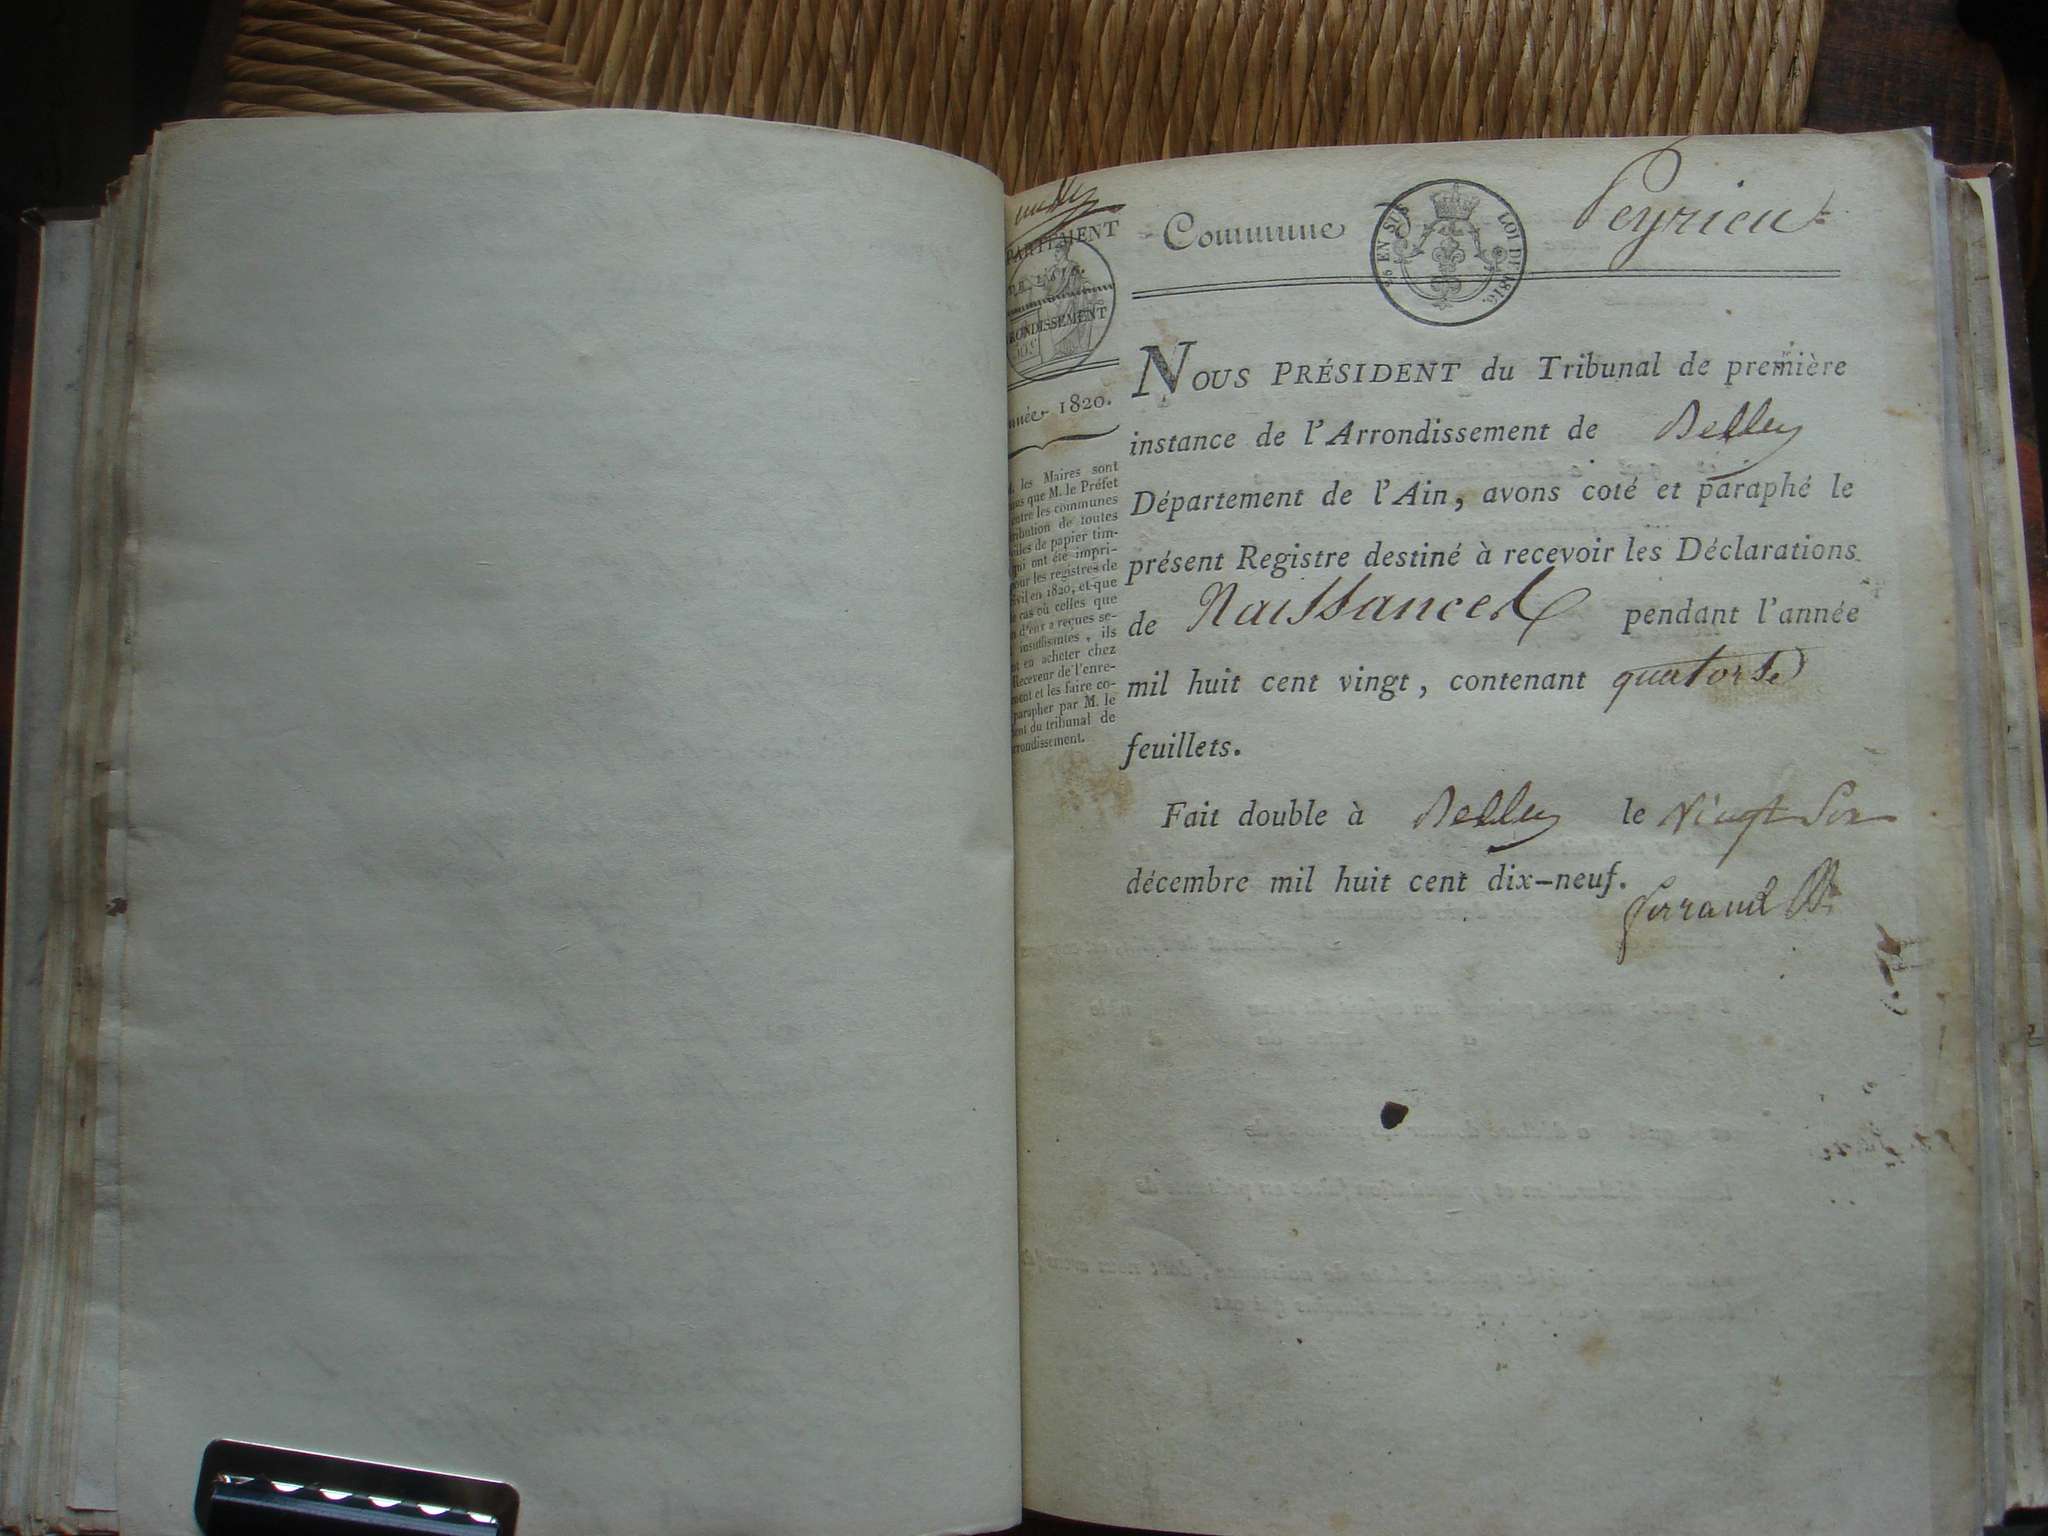 Commune Peyrieu
PARTEMENT
DE L'AIN.
RONDISSEMENT
² EN SUS LOI DE 1816.
nnée 1820.
. les Maires sont
nus que M. le Préfet
entre les communes
tribution de toutes
uilles de papier tim-
qui ont été impri-
pour les registres de
ivil en 1820, et que
le cas où celles que
n d'eux a reçues se-
insuffisantes, ils
nt en acheter chez
Receveur de l'enre-
ment et les faire co-
parapher par M. le
dent du tribunal de
rrondissement.
NOUS PRÉSIDENT du Tribunal de première
instance de l'Arrondissement de Belley
Département de l'Ain, avons coté et paraphé le
présent Registre destiné à recevoir les Déclarations
de Naissances pendant l'année
mil huit cent vingt, contenant quatorse
feuillets.
Fait double à Belley le Vingt Six
décembre mil huit cent dix-neuf.
Ferrand